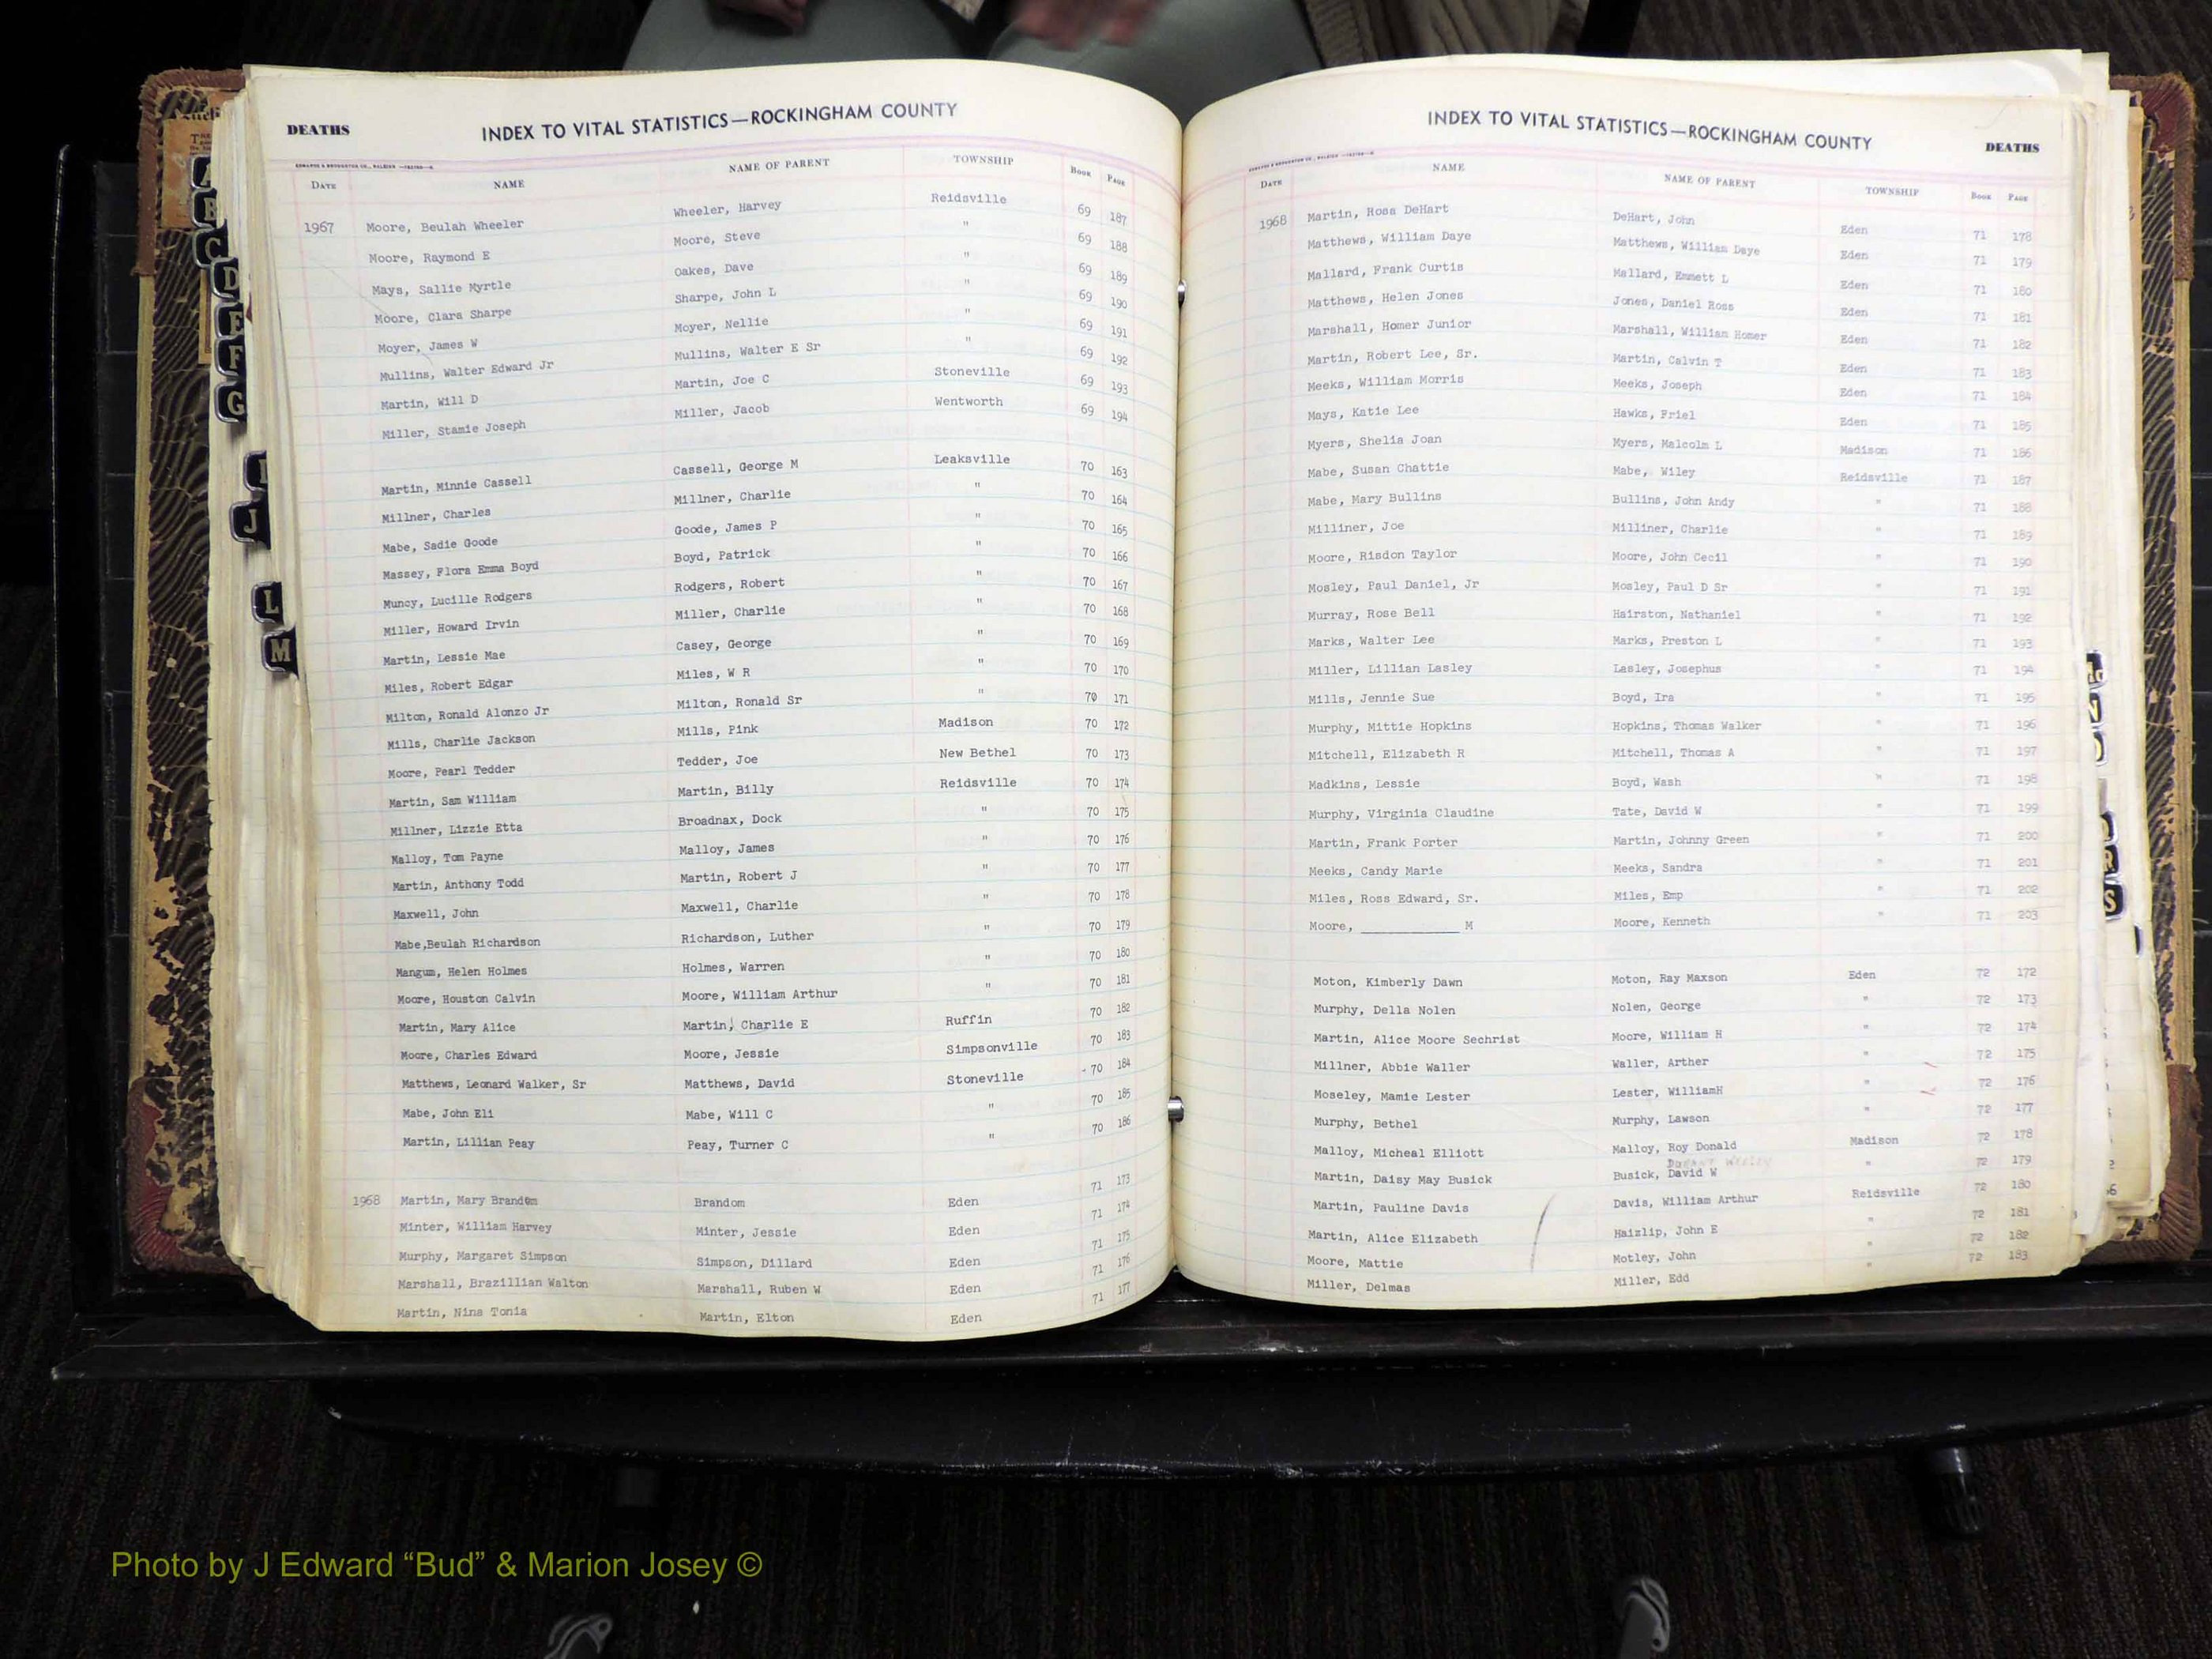 DEATHS INDEX TO VITAL STATISTICS—ROCKINGHAM COUNTY
DATE NAME NAME OF PARENT TOWNSHIP BOOK PAGE
1967 Moore, Beulah Wheeler Wheeler, Harvey Reidsville 69 187
Moore, Raymond E Moore, Steve " 69 188
Mays, Sallie Myrtle Oakes, Dave " 69 189
Moore, Clara Sharpe Sharpe, John L " 69 190
Moyer, James W Moyer, Nellie " 69 191
Mullins, Walter Edward Jr Mullins, Walter E Sr " 69 192
Martin, Will D Martin, Joe C Stoneville 69 193
Miller, Stamie Joseph Miller, Jacob Wentworth 69 194
Martin, Minnie Cassell Cassell, George M Leaksville 70 163
Millner, Charles Millner, Charlie " 70 164
Mabe, Sadie Goode Goode, James P " 70 165
Massey, Flora Emma Boyd Boyd, Patrick " 70 166
Muncy, Lucille Rodgers Rodgers, Robert " 70 167
Miller, Howard Irvin Miller, Charlie " 70 168
Martin, Lessie Mae Casey, George " 70 169
Miles, Robert Edgar Miles, W R " 70 170
Milton, Ronald Alonzo Jr Milton, Ronald Sr " 70 171
Mills, Charlie Jackson Mills, Pink Madison 70 172
Moore, Pearl Tedder Tedder, Joe New Bethel 70 173
Martin, Sam William Martin, Billy Reidsville 70 174
Millner, Lizzie Etta Broadnax, Dock " 70 175
Malloy, Tom Payne Malloy, James " 70 176
Martin, Anthony Todd Martin, Robert J " 70 177
Maxwell, John Maxwell, Charlie " 70 178
Mabe,Beulah Richardson Richardson, Luther " 70 179
Mangum, Helen Holmes Holmes, Warren " 70 180
Moore, Houston Calvin Moore, William Arthur " 70 181
Martin, Mary Alice Martin, Charlie E Ruffin 70 182
Moore, Charles Edward Moore, Jessie Simpsonville 70 183
Matthews, Leonard Walker, Sr Matthews, David Stoneville 70 184
Mabe, John Eli Mabe, Will C " 70 185
Martin, Lillian Peay Peay, Turner C " 70 186
1968 Martin, Mary Brandom Brandom Eden 71 173
Minter, William Harvey Minter, Jessie Eden 71 174
Murphy, Margaret Simpson Simpson, Dillard Eden 71 175
Marshall, Brazillian Walton Marshall, Ruben W Eden 71 176
Martin, Nina Tonia Martin, Elton Eden 71 177
INDEX TO VITAL STATISTICS—ROCKINGHAM COUNTY DEATHS
DATE NAME NAME OF PARENT TOWNSHIP BOOK PAGE
1968 Martin, Rosa DeHart DeHart, John Eden 71 178
Matthews, William Daye Matthews, William Daye Eden 71 179
Mallard, Frank Curtis Mallard, Emmett L Eden 71 180
Matthews, Helen Jones Jones, Daniel Ross Eden 71 181
Marshall, Homer Junior Marshall, William Homer Eden 71 182
Martin, Robert Lee, Sr. Martin, Calvin T Eden 71 183
Meeks, William Morris Meeks, Joseph Eden 71 184
Mays, Katie Lee Hawks, Friel Eden 71 185
Myers, Shelia Joan Myers, Malcolm L Madison 71 186
Mabe, Susan Chattie Mabe, Wiley Reidsville 71 187
Mabe, Mary Bullins Bullins, John Andy " 71 188
Milliner, Joe Milliner, Charlie " 71 189
Moore, Risdon Taylor Moore, John Cecil " 71 190
Mosley, Paul Daniel, Jr Mosley, Paul D Sr " 71 191
Murray, Rose Bell Hairston, Nathaniel " 71 192
Marks, Walter Lee Marks, Preston L " 71 193
Miller, Lillian Lasley Lasley, Josephus " 71 194
Mills, Jennie Sue Boyd, Ira " 71 195
Murphy, Mittie Hopkins Hopkins, Thomas Walker " 71 196
Mitchell, Elizabeth R Mitchell, Thomas A " 71 197
Madkins, Lessie Boyd, Wash " 71 198
Murphy, Virginia Claudine Tate, David W " 71 199
Martin, Frank Porter Martin, Johnny Green " 71 200
Meeks, Candy Marie Meeks, Sandra " 71 201
Miles, Ross Edward, Sr. Miles, Emp " 71 202
Moore, ____________ M Moore, Kenneth " 71 203
Moton, Kimberly Dawn Moton, Ray Maxson Eden 72 172
Murphy, Della Nolen Nolen, George " 72 173
Martin, Alice Moore Sechrist Moore, William H " 72 174
Millner, Abbie Waller Waller, Arther " 72 175
Moseley, Mamie Lester Lester, WilliamH " 72 176
Murphy, Bethel Murphy, Lawson " 72 177
Malloy, Micheal Elliott Malloy, Roy Donald Madison 72 178
Martin, Daisy May Busick Busick, David W " 72 179
Martin, Pauline Davis Davis, William Arthur Reidsville 72 180
Martin, Alice Elizabeth Haizlip, John E " 72 181
Moore, Mattie Motley, John " 72 182
Miller, Delmas Miller, Edd 72 183
A
B
C
D
E
F
G
I
J
L
M
N
R
S
Photo by J Edward “Bud” & Marion Josey ©